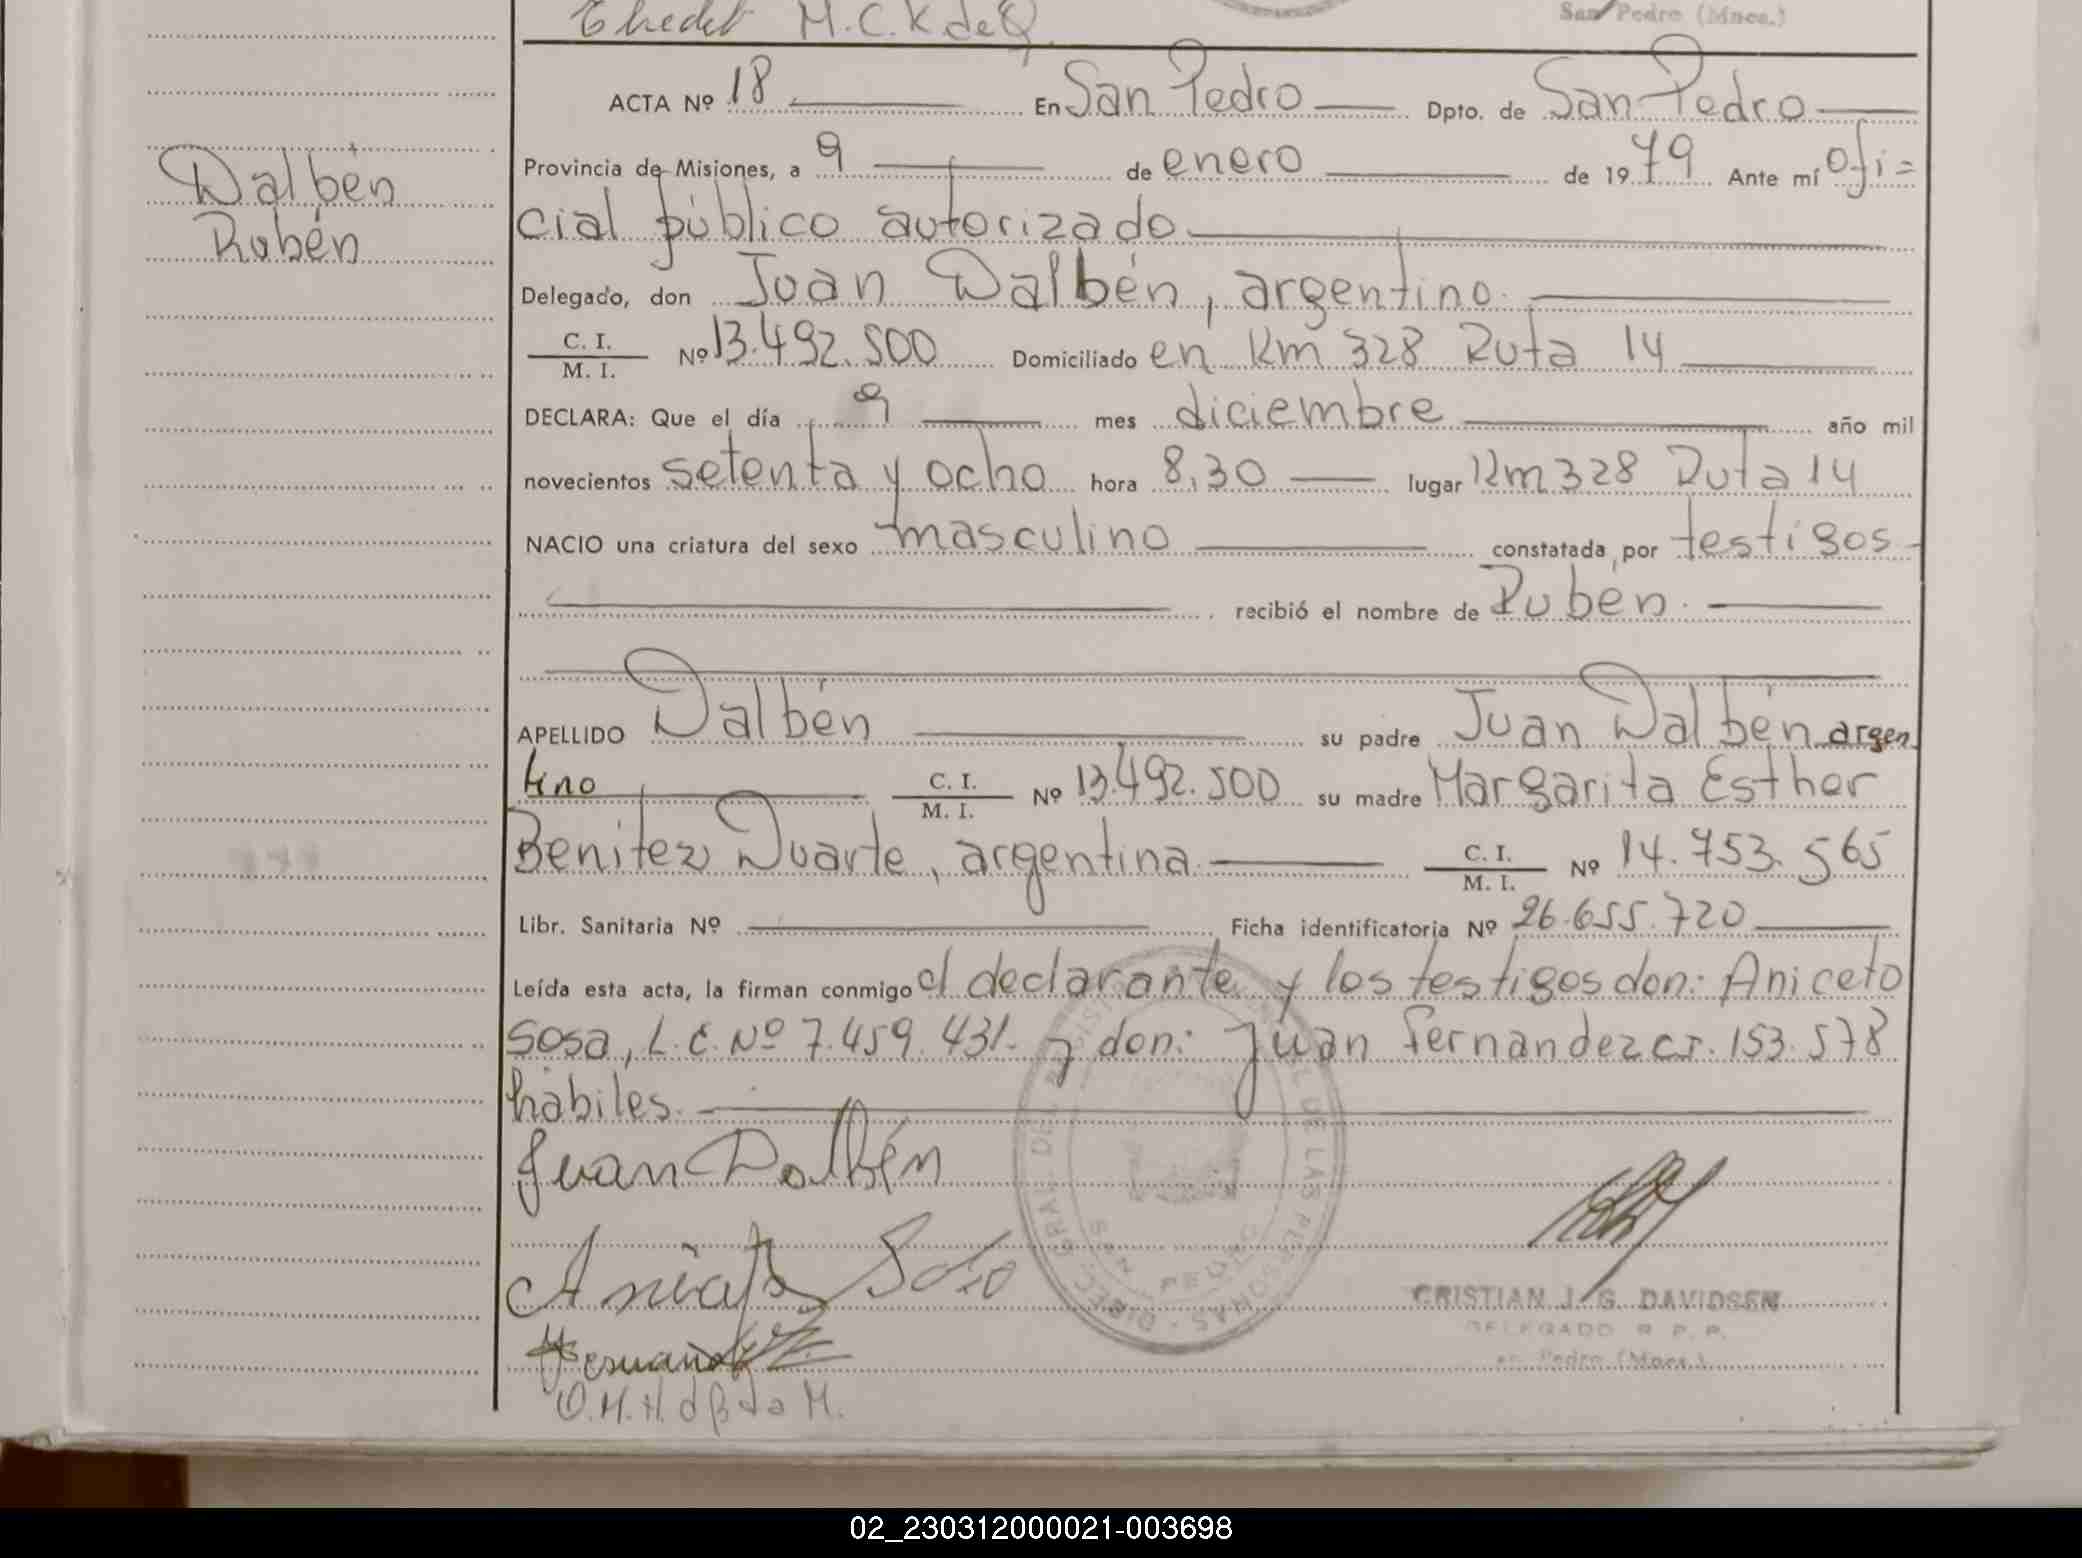 Ehedet M.C.K. de Q.
San Pedro (Mnes.)
ACTA Nº 18 En San Pedro Dpto. de San Pedro
Dalbén
Rubén
Provincia de Misiones, a 9 de enero de 1979 Ante mí ofi=
cial público autorizado
Delegado, don Juan Dalbén, argentino.
C. I.
M. I. Nº 13.492.500 Domiciliado en Km 328 Ruta 14
DECLARA: Que el día 9 mes diciembre año mil
novecientos setenta y ocho hora 8,30 lugar Km 328 Ruta 14
NACIO una criatura del sexo masculino constatada por testigos
recibió el nombre de Rubén.
APELLIDO Dalbén su padre Juan Dalbén argen
tino C. I. M. I. Nº 13.492.500 su madre Margarita Esther
Benitez Duarte, argentina. C. I. M. I. Nº 14.753.565
Libr. Sanitaria Nº Ficha identificatoria Nº 26.655.720
Leída esta acta, la firman conmigo el declarante y los testigos don: Aniceto
Sosa, L.E. Nº 7.459.431. y don: Juan Fernandez C.I. 153.578
hábiles.
Juan Dalbén
DIREC. GRAL. DEL REGISTRO DE LAS PERSONAS
SAN PEDRO
CRISTIAN J. G. DAVIDSEN
DELEGADO R. P. P.
San Pedro (Mnes.)
02_230312000021-003698